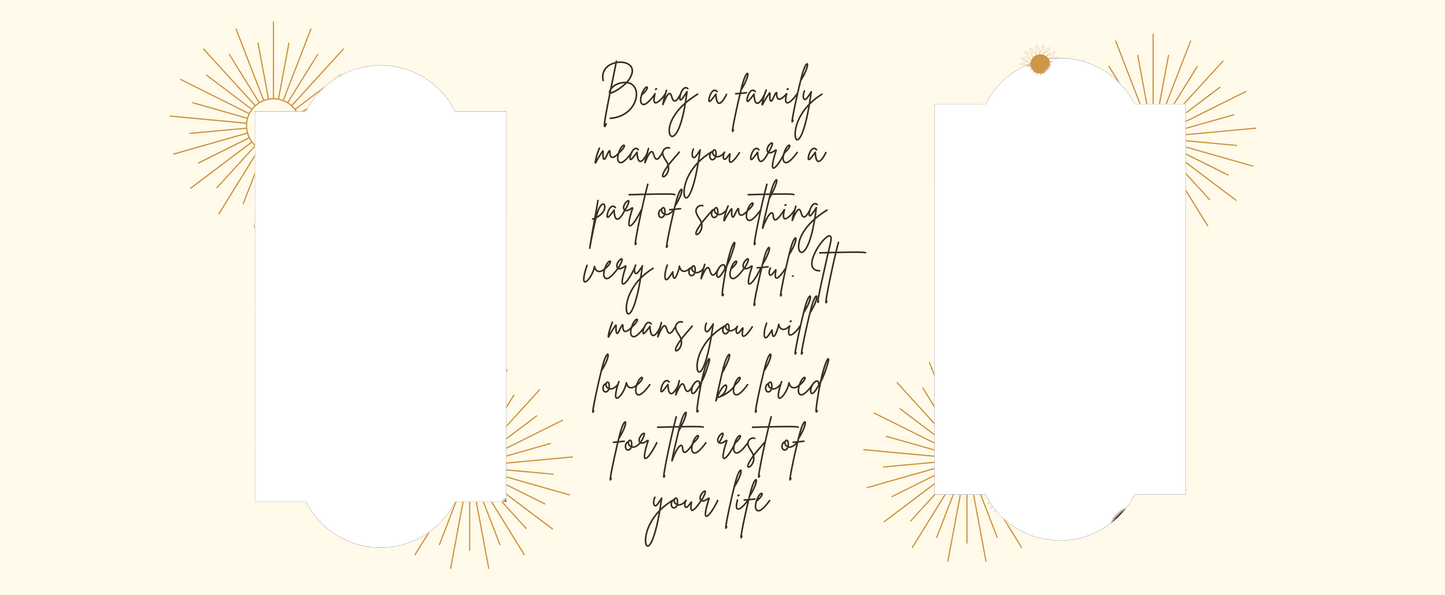 Being a family
means you are a
part of something
very wonderful. It
means you will
love and be loved
for the rest of
your life